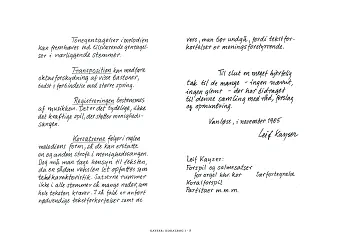 Tonegentagelser i melodien
kan fremhæves ved tilsvarende gentagel-
ser i nærliggende stemmer.
Transposition kan medføre
oktavforskydning af visse bastoner,
bedst i forbindelse med større spring.
Registreringen bestemmes
af musikken. Det er det tydelige, ikke
det kraftige spil, der støtter menigheds-
sangen.
Koralerne følger i reglen
melodiens form, så de kan erstatte
en og anden strofe i menighedssangen.
Dog må man tage hensyn til teksten,
da en sådan vekslen let opfattes som
tekstkarakteristik. Satserne rummer
ikke i alle stemmer så mange noder, som
hele teksten kræver. I så fald er anført
nødvendige tekstforkortelser som de
vers, man bør undgå, fordi tekstfor-
kortelser er meningsforstyrrende.
Til slut en meget hjertelig
tak til de mange - ingen nævnt,
ingen glemt - der har bidraget
til denne samling med råd, forslag
og opmuntring.
Vanløse, i november 1985
Leif Kayser
Leif Kayser:
Forspil og salmesatser
for orgel har kor Særfortegnelse
Koralforspil
Partitaer m.m.